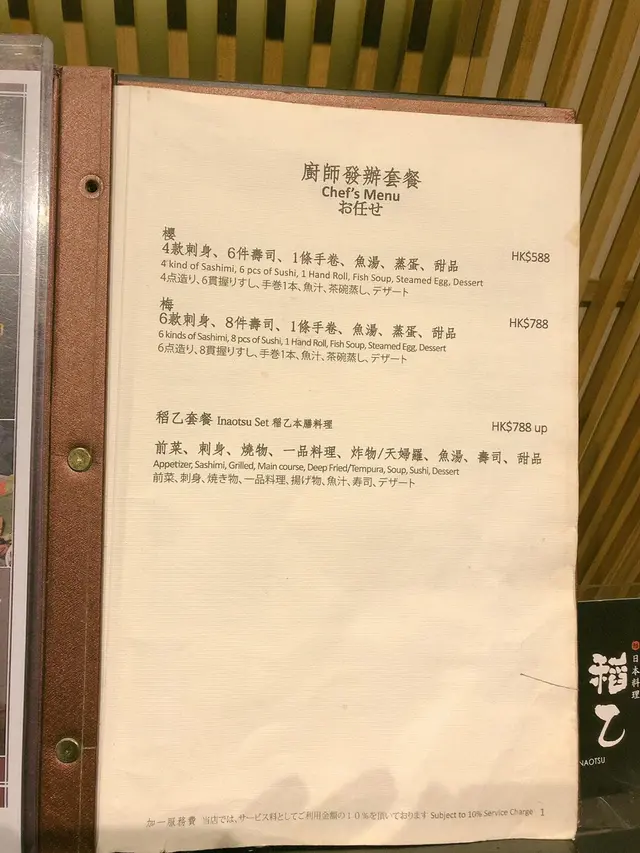 廚師發辦套餐
Chef's Menu
お任せ
櫻
4款刺身、6件壽司、1條手卷、魚湯、蒸蛋、甜品 HK$588
4 kind of Sashimi, 6 pcs of Sushi, 1 Hand Roll, Fish Soup, Steamed Egg, Dessert
4点造り、6貫握りすし、手巻1本、魚汁、茶碗蒸し、デザート
梅
6款刺身、8件壽司、1條手卷、魚湯、蒸蛋、甜品 HK$788
6 kinds of Sashimi, 8 pcs of Sushi, 1 Hand Roll, Fish Soup, Steamed Egg, Dessert
6点造り、8貫握りすし、手巻1本、魚汁、茶碗蒸し、デザート
稻乙套餐 Inaotsu Set 稻乙本膳料理 HK$788 up
前菜、刺身、燒物、一品料理、炸物/天婦羅、魚湯、壽司、甜品
Appetizer, Sashimi, Grilled, Main course, Deep Fried/Tempura, Soup, Sushi, Dessert
前菜、刺身、焼き物、一品料理、揚げ物、魚汁、寿司、デザート
加一服務費 当店では、サービス料としてご利用金額の10%を頂いております Subject to 10% Service Charge 1
日本料理
稻乙
NAOTSU